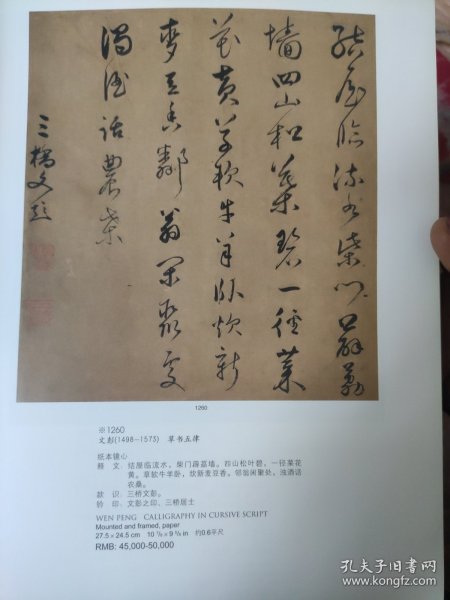 结屋临流水柴门薜荔
墙四山松叶碧一径菜
花黄草软牛羊卧炊新
麦豆香邻翁闲聚处
浊酒话农桑
三桥文彭
1260
※1260
文彭(1498-1573) 草书五律
纸本镜心
释 文：结屋临流水，柴门薜荔墙。四山松叶碧，一径菜花
黄。草软牛羊卧，炊新麦豆香。邻翁闲聚处，浊酒话
农桑。
款 识：三桥文彭。
钤 印：文彭之印、三桥居士
WEN PENG CALLIGRAPHY IN CURSIVE SCRIPT
Mounted and framed, paper
27.5×24.5 cm 10 7/8×9 5/8 in 约0.6平尺
RMB: 45,000-50,000
孔夫子旧书网
book.kongfz.com